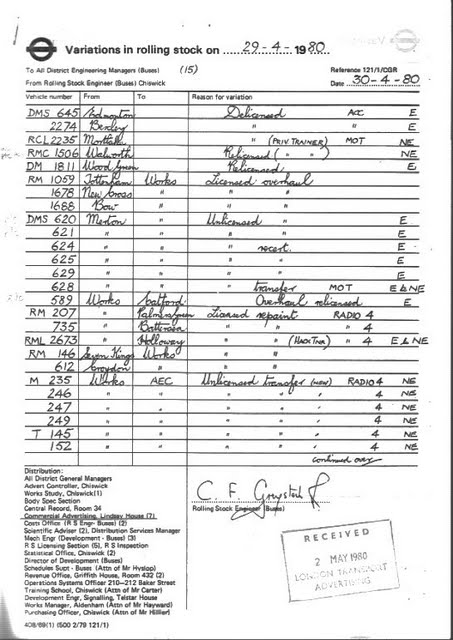 Variations in rolling stock on 29-4-1980
To All District Engineering Managers (Buses) (15) Reference 121/1/CGR
From Rolling Stock Engineer (Buses) Chiswick Date 30-4-80
Vehicle number From To Reason for variation
DMS 645 Edmonton Delicensed ACC E
2274 Bexley " " E
RCL 2235 Mortlake " (PRIV. TRAINER) MOT NE
RMC 1506 Walworth Relicensed ( " " ) NE
DM 1811 Wood Green Relicensed E
RM 1059 Tottenham Works Licensed overhaul
1678 New Cross " " "
1688 Bow " " "
DMS 620 Merton " Unlicensed " E
621 " " " " E
624 " " " recert. E
625 " " " " E
629 " " " " E
628 " " " transfer MOT E & NE
589 Works Catford Overhaul relicensed E
RM 207 " Palmers Green Licensed repaint RADIO 4
735 " Battersea " " 4
RML 2673 " Holloway " " 4 E & NE
RM 146 Seven Kings Works " "
612 Croydon " " "
M 235 Works AEC Unlicensed transfer (NEW) RADIO 4 NE
246 " " " " " 4 NE
247 " " " " " 4 NE
249 " " " " " 4 NE
T 145 " " " " " 4 NE
152 " " " " " 4 NE
continued over
Distribution:
All District General Managers
Advert Controller, Chiswick
Works Study, Chiswick(1)
Body Spec Section
Central Record, Room 34
Commercial Advertising, Lindsey House (7)
Costs Office (R S Engr- Buses) (2)
Scientific Adviser (2), Distribution Services Manager
Mech Engr (Development - Buses) (3)
R S Licensing Section (5), R S Inspection
Statistical Office, Chiswick (2)
Director of Development (Buses)
Schedules Supt - Buses (Attn of Mr Hyslop)
Revenue Office, Griffith House, Room 432 (2)
Operations Systems Officer 210-212 Baker Street
Training School, Chiswick (Attn of Mr Carter)
Development Engr, Signalling, Telstar House
Works Manager, Aldenham (Attn of Mr Hayward)
Purchasing Officer, Chiswick (Attn of Mr Hillier)
Rolling Stock Engineer (Buses)
RECEIVED
2 MAY 1980
LONDON TRANSPORT
ADVERTISING
408/69(1) (500 2/79 121/1)